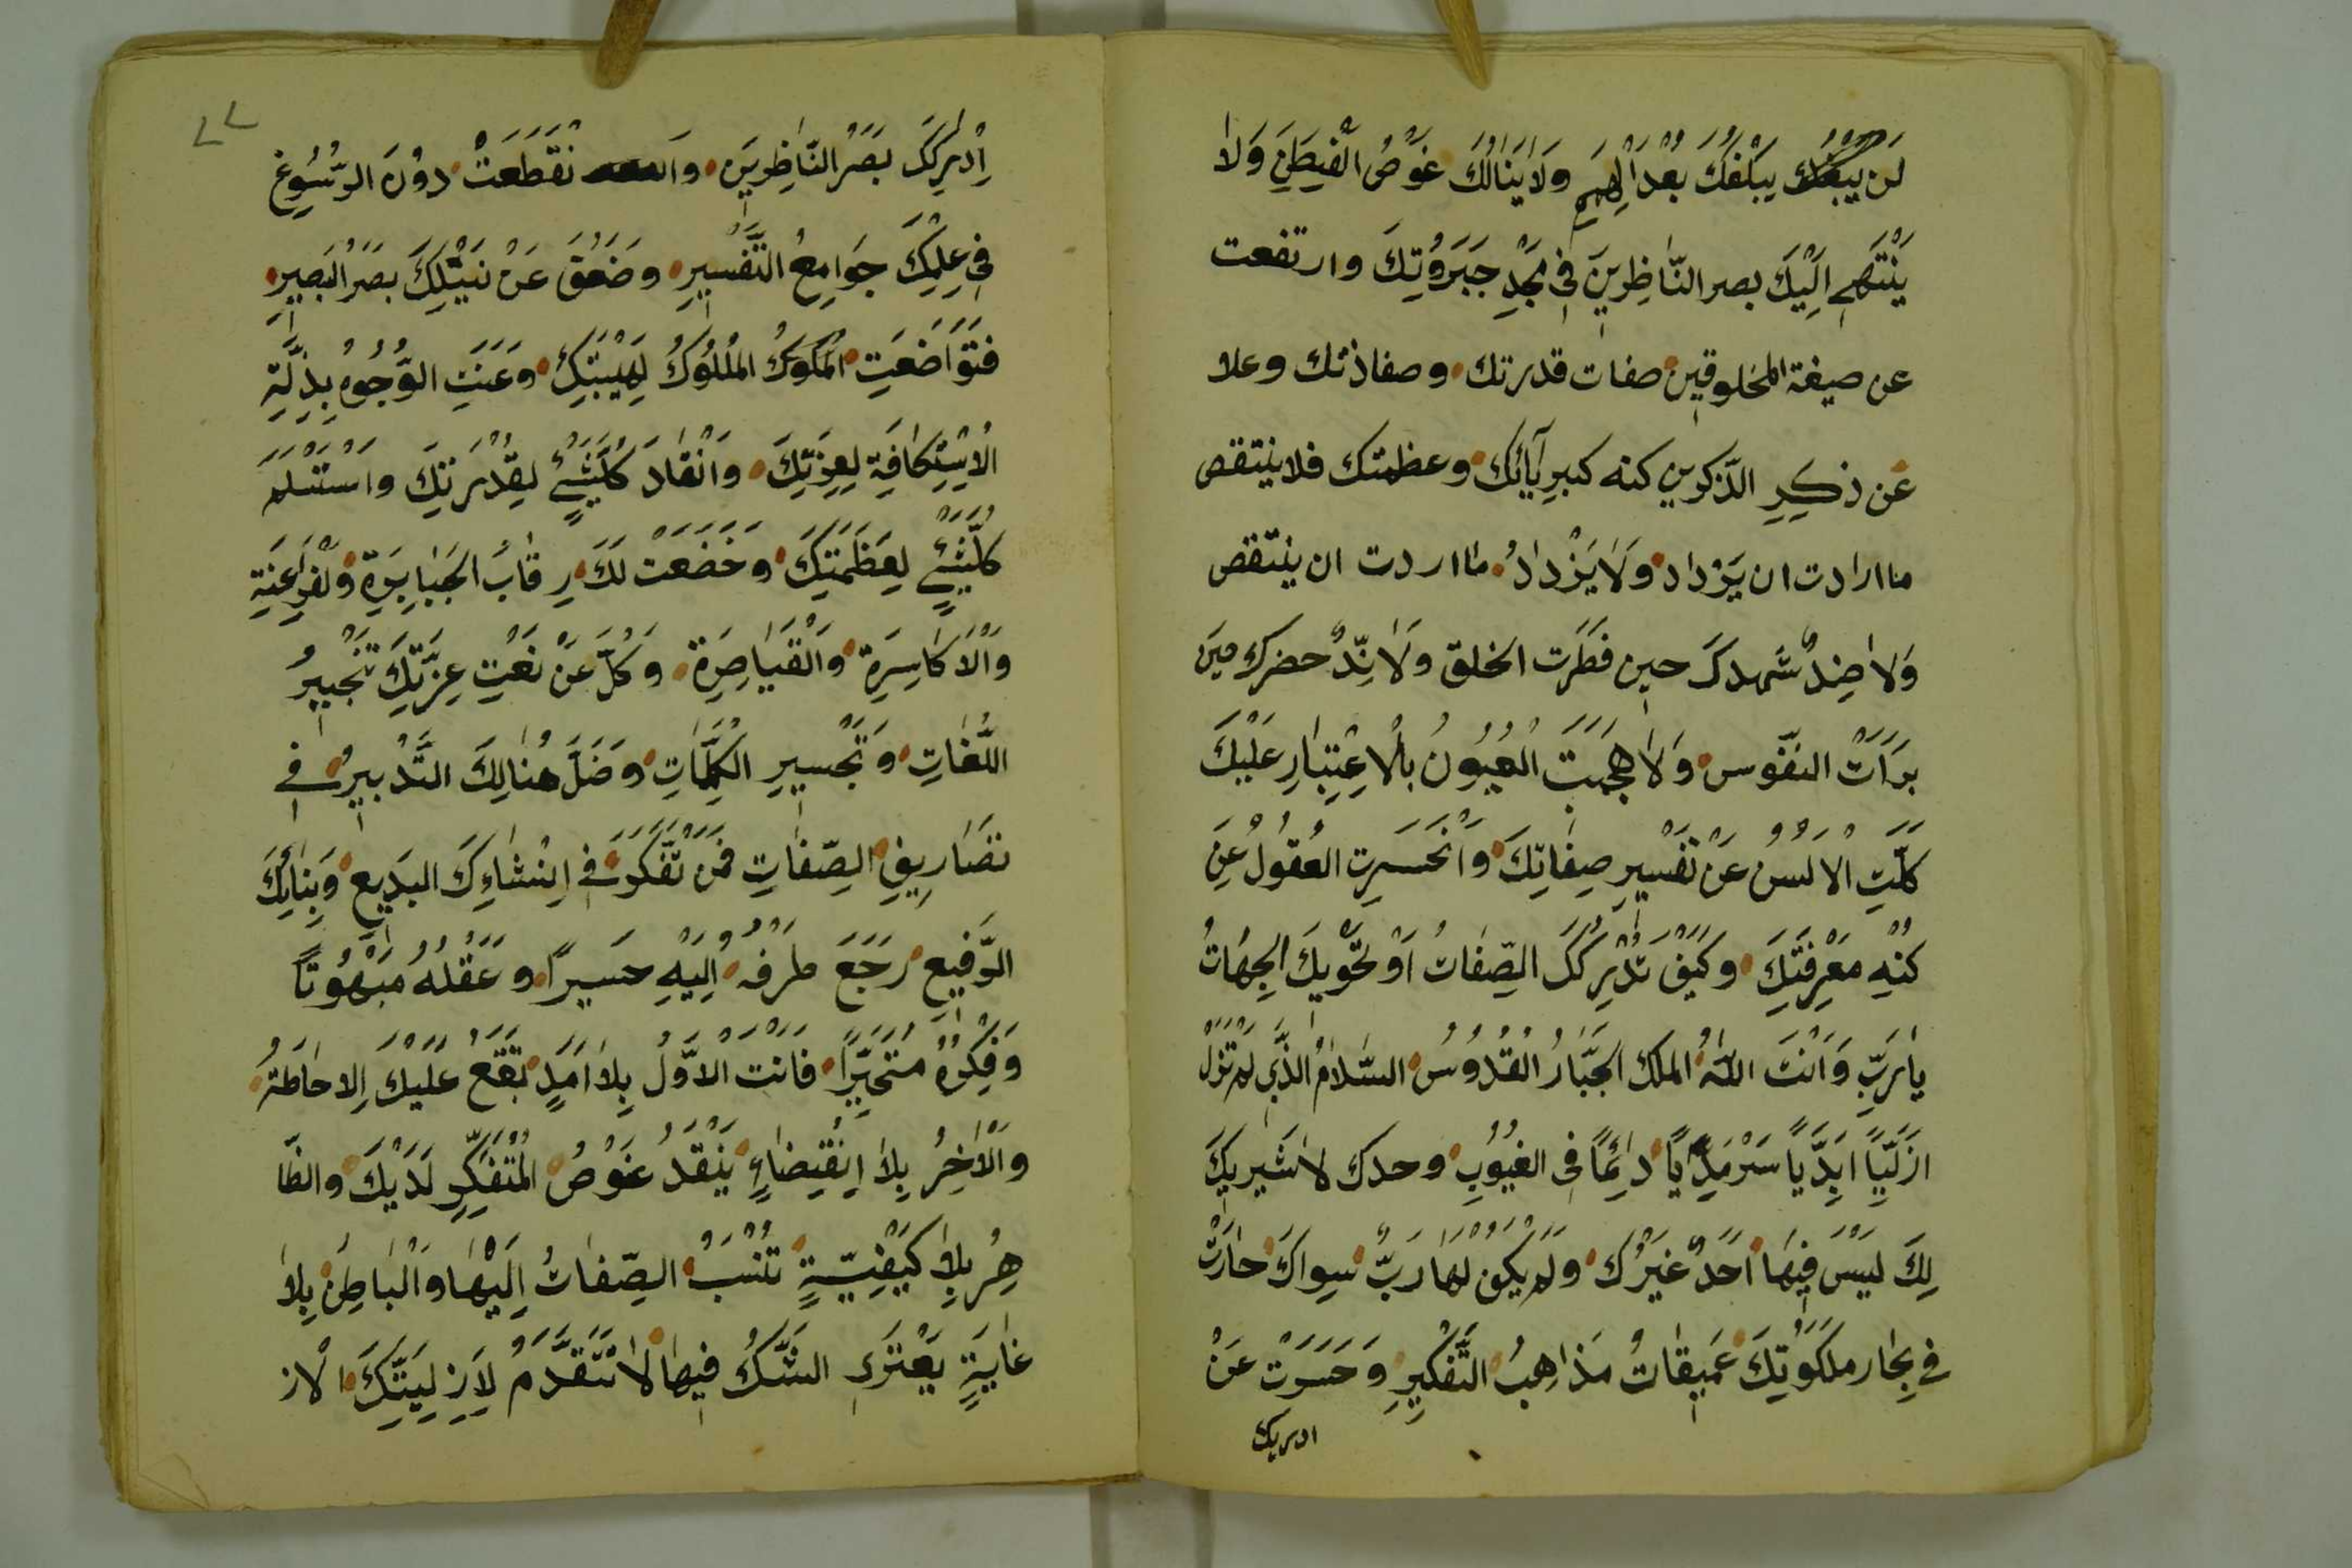 لَن يَبْلُغُكَ بُعْدُ الْهِمَمِ وَلَا يَنَالُكَ غَوْصُ الْفِطَنِ وَلَا
يَنْتَهِي اِلَيْكَ بصر النَّاظِرِينَ فِي مَجْدِ جَبَرُوتِكَ وارتفعت
عن صيغة المخلوقين صفات قدرتك وصفاذتك وعلا
عَن ذكِرِ الذّكرين كنه كبرِيَآئك وعظمتك فلا ينتقص
ما ارادت ان يَزْداد وَلَا يَزْدادُ ما اردت ان ينتقص
وَلا ضِدٌّ شَهدكَ حين فَطَرَت الخلق وَلَا نِدٌّ حضرك حين
بَرَاَتَ النفوس وَلَا هجمَت الْعُيُونُ بالْاعْتِبَارِ عَلَيْكَ
كلَّتِ الْاَلسُنُ عَنْ تَفْسِيرِ صِفَاتِكَ وَانْحَسَرِت العُقُولُ عَنِ
كنْهِ مَعْرِفَتِكَ وَكَيْفَ تُدْرِكُكَ الصِّفَاتُ اَوْ تَحْوِيكَ الجِهَاتُ
يا رَبِّ وَاَنْتَ اللّٰهُ الملك الْجَبَّارُ الْقُدُّوسُ السَّلَامُ الَّذِي لَمْ تَزَلْ
ازَلِيًّا اَبَدِيًّا سَرْمَدِيًا دَائِمًا فِي الغيُوُبِ وحدك لا شَرِيكَ
لَكَ لَيْسَ فِيهَا اَحَدٌ غَيْرُكَ وَلَم يَكُن لَهَا رَبٌّ سِوَاكَ حَارَتْ
في بِحَار مَلَكُوتِكَ عَمِيقَاتُ مَذاهِبُ التَّفْكِيرِ وَحَسَرَت عَنْ
ادريك
٧٧
اِدْرِكَكَ بَصَرُ النَّاظِرِينَ وَ تَقَطَعَتْ دُونَ الرُّسُوغِ
فِي عِلْمِكَ جَوَامِعُ التَّفْسِيرِ وضَعُفَ عَنْ نَيْلِكَ بَصَرُ البَصِيرِ
فَتَوَاضَعَتِ المُلُوكُ لِهَيْبَتِكَ وَعَنَتِ الوُجُوهُ بِذِلَّةِ
الْاِسْتِكَافَةِ لِعِزَّتِكَ وَانْقَادَ كُلُّشَيْءٍ لِقُدْرَتِكَ وَاسْتَسْلَمَ
كُلُّشَيْءٍ لِعَظَمَتِكَ وَخَضَعَتْ لَكَ رِقَابُ الجَبَابِرَةِ وَلْفَرِاعِنَةِ
وَالْاَكَاسِرَةِ وَالْقَيَاصِرَةِ وَكَلَّ عَنْ نَعْتِ عِزَّتِكَ تَحْبِيرُ
اللُّغَاتِ وَتَحْسِيرِ الْكَلِمَاتِ وَضَلَّ هُنَالِكَ التَّدْبِيرُ في
تَصَارِيفِ الصِّفَاتِ فَمَن تَفَكَّرَ فِي اِنْشَاءِكَ البَدِيعِ وَبِنَائِكَ
الرَّفِيعِ رَجَعَ طَرْفُهُ اِلَيْهِ حَسِيرًا وَعَقْلُهُ مَبْهُوتًا
وَفِكْرُهُ مُتَحَيِّرًا فَاَنْتَ الْاَوَّلُ بِلَا اَمَدٍ تَقَعُ عَلَيْكَ الِاحَاطَةُ
وَالْاخِرُ بِلَا اِنْقِضَاءٍ يَنْقَدُ غَوْصُ الْمُتَفَكِّرِ لَدَيْكَ وَالظَّا
هِرُ بِلَا كَيْفِيَّةٍ تُنْسَبُ الصِّفَاتُ اِلَيْهَا وَالْبَاطِنُ بِلَا
غَايَةٍ يَعْتَرِي الشَّكُّ فِيهَا لَا تَتَقَدَّمُ لِاَزَلِيَّتِكَ الْاز